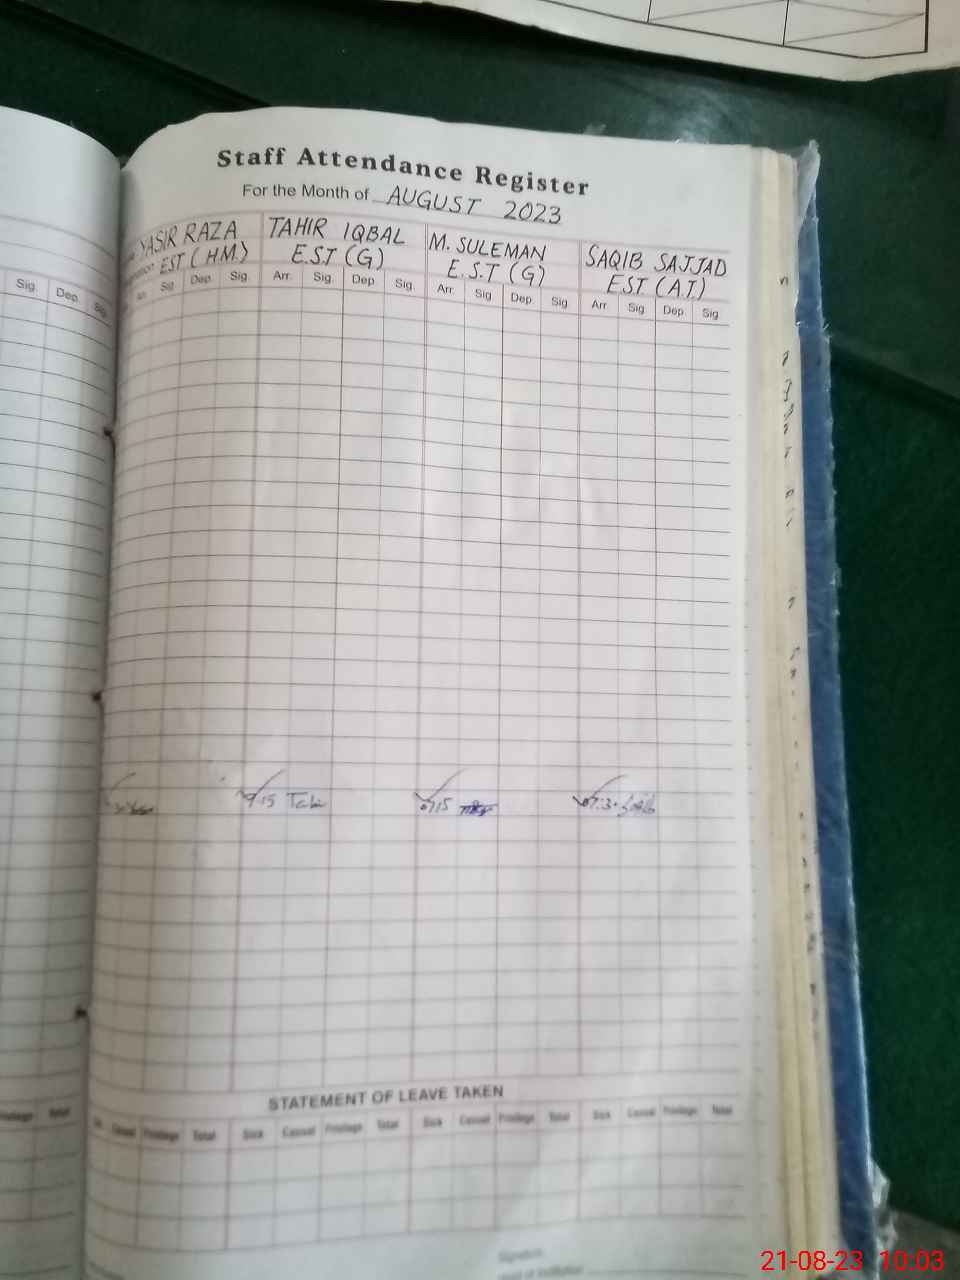 Staff Attendance Register
For the Month of AUGUST 2023
YASIR RAZA TAHIR IQBAL M. SULEMAN SAQIB SAJJAD
EST (H.M.) E.S.T (G) E.S.T (G) EST (A.T.)
Sig. Dep. Sig. Arr. Sig. Dep. Sig. Arr. Sig. Dep. Sig. Arr. Sig. Dep. Sig. Arr. Sig. Dep. Sig
07:15
STATEMENT OF LEAVE TAKEN
Privilege Total Casual Privilege Total Sick Casual Privilege Total Sick Casual Privilege Total Sick Casual Privilege Total
Signature
Head of Institution
21-08-23 10:03